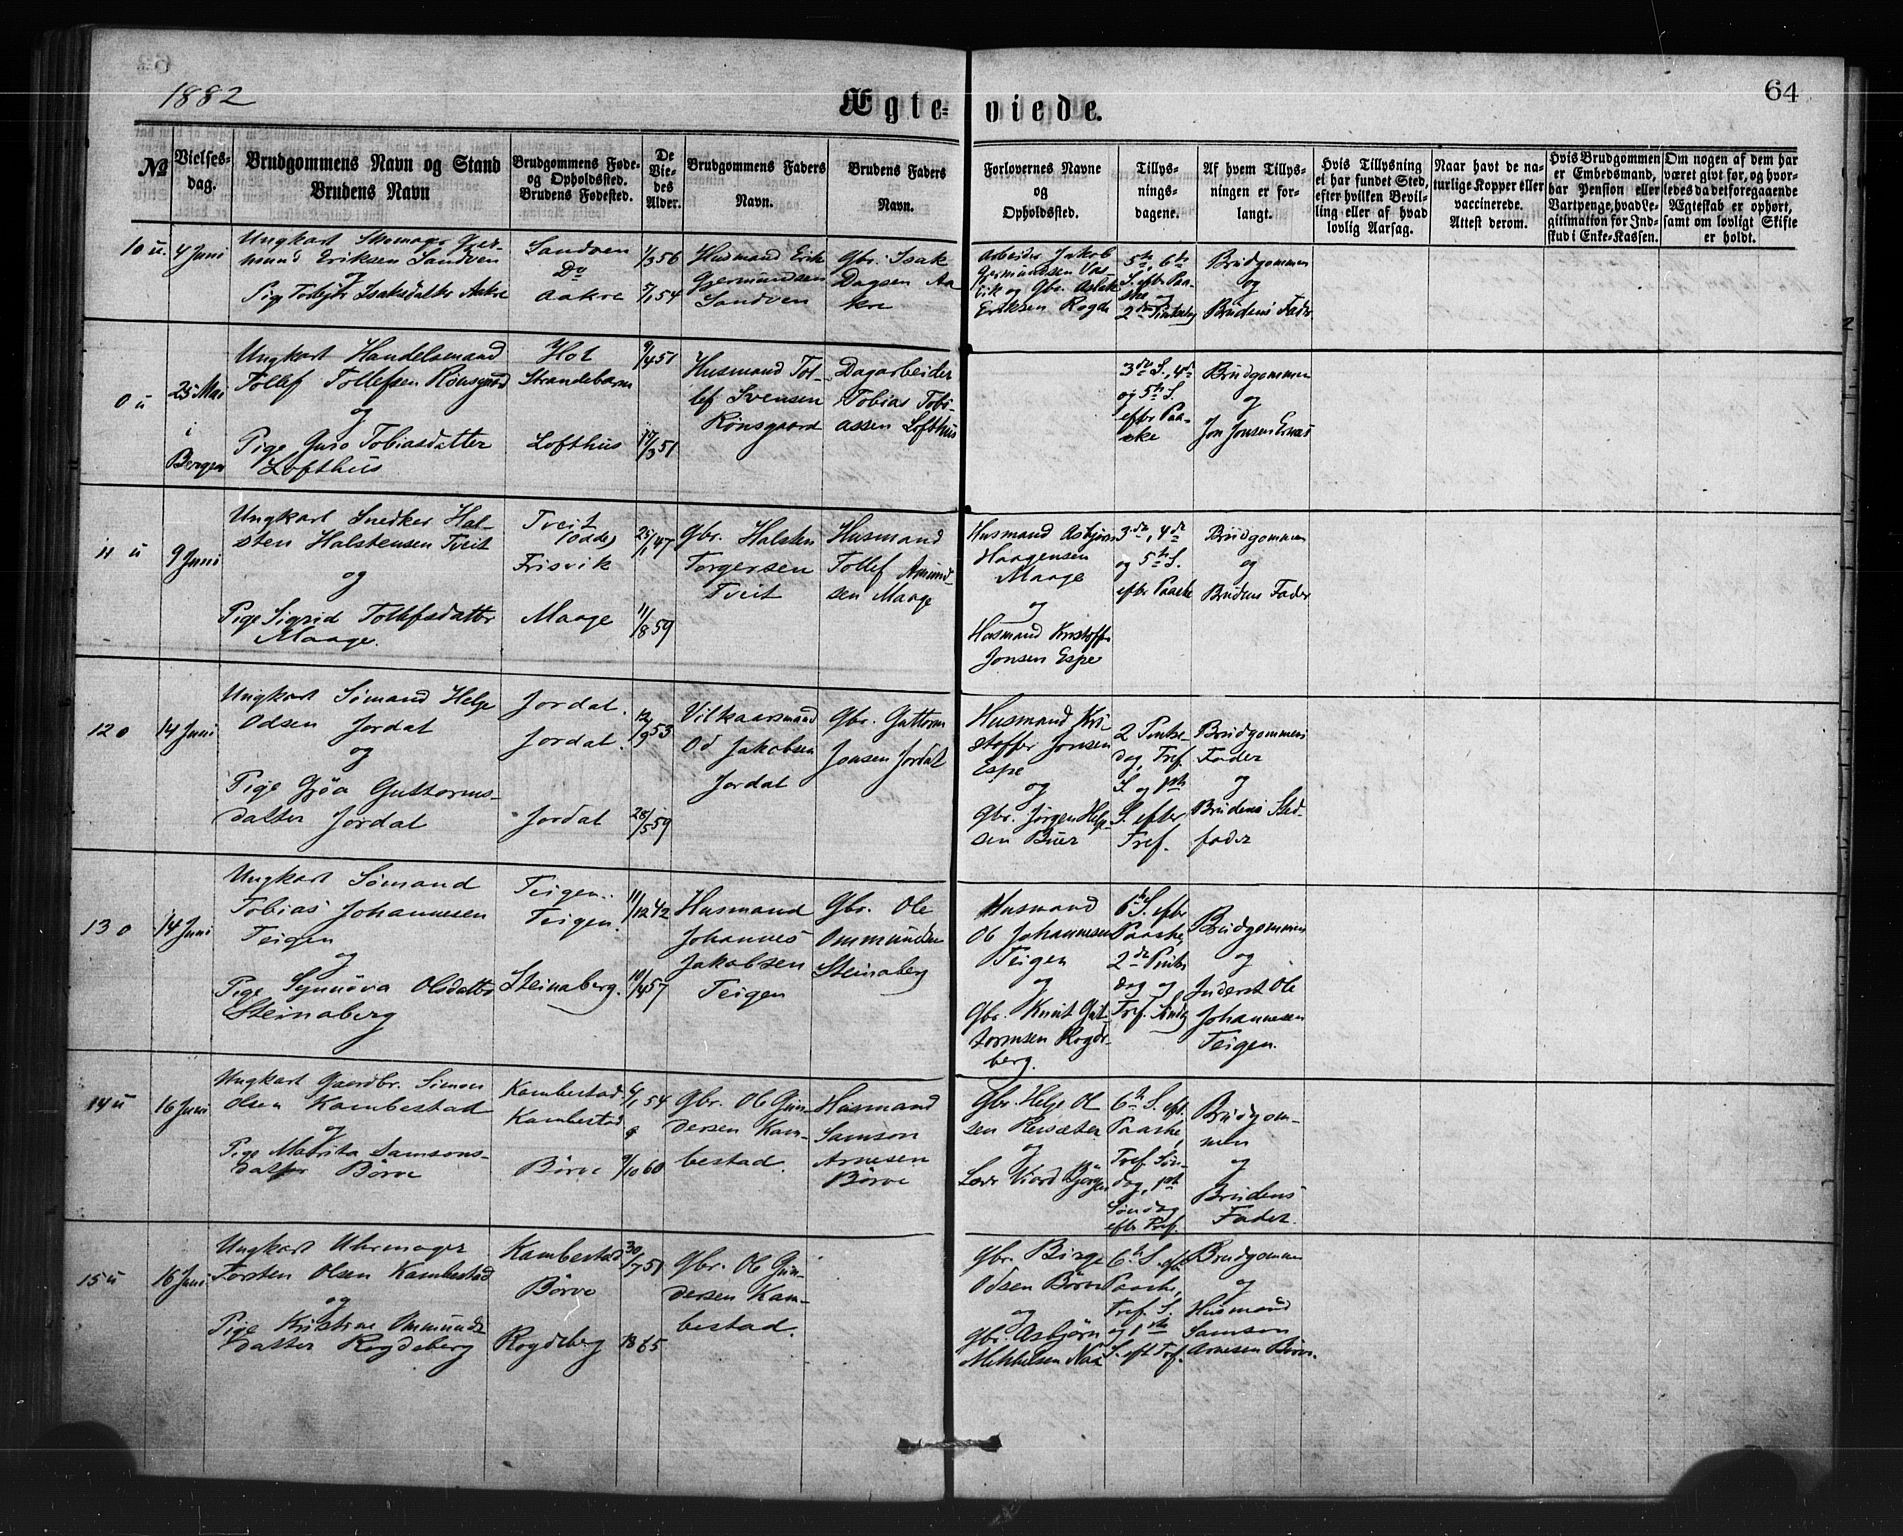 1882
64
Ægte-viede.
№
Vielses-dag.
Brudgommens Navn og Stand
Brudens Navn
Brudgommens Føde- og Opholdssted.
Brudens Fødested.
De Vie-des Alder.
Brudgommens Faders Navn.
Brudens Faders Navn.
Forlovernes Navne og Opholdssted.
Tillys-nings-dagene.
Af hvem Tillys-ningen er for-langt.
Hvis Tillysning ei har fundet Sted, efter hvilken Bevil-ling eller af hvad lovlig Aarsag.
Naar havt de na-turlige Kopper eller vaccinerede. Attest derom.
Hvis Brudgommen er Embedsmand, har Pension eller Vartpenge, hvad Le-gitimation for Ind-skud i Enke-Kassen.
Om nogen af dem har været givt før, og hvor-ledes da det foregaaende Ægteskab er ophørt, samt om lovligt Skifte er holdt.
10 u. 4 Juni
Ungkarl Skomager Gjer-
mund Eriksen Sandven
og
Pige Torbjør Isaksdatter Aakre
Sandven
Do
Aakre
1/3 56
7/1 54
Husmand Erik
Gjermundsen
Sandven
Gbr. Isak
Dagsen Aa-
kre
Arbeider Jakob
Gjermundsen
vik og Gbr. Aslak
Eriksen Rogde
5te, 6te
S. efter Paa-
ske og
2den Pintsedag
Brudgommen
og
Brudens Fader
0 u 25 Mai
i
Bergen
Ungkarl Handelsmand
Tollef Tollefsen Rønsgaard
og
Pige Guro Tobiasdatter
Lofthus
Hot
Strandebarm
Lofthus
9/4 51
17/3 51
Husmand Tol-
lef Svensen
Rønsgaard
Dagarbeider
Tobias Tobi-
assen Lofthus
3die S., 4de
og 5te S.
efter Paa-
ske
Brudgommen
og
Jon Jonsen Ernes
11 u 9 Juni
Ungkarl Snedker Hal-
sten Halstensen Tveit
og
Pige Sigrid Tollefsdatter
Maage.
Tveit
(Odde)
Frisvik
Maage
25/1 47
11/8 59
Gbr. Halsten
Torgersen
Tveit
Husmand
Tollef Amund-
sen Maage
Husmand Asbjørn
Haagensen
Maage
og
Husmand Kristoffer
Jonsen Espe
3die, 4de
og 5te S.
efter Paaske
Brudgommen
og
Brudens Fader
12 0 14 Juni
Ungkarl Sømand Helje
Odsen Jordal
og
Pige Gjøa Guttorms-
datter Jordal
Jordal.
Jordal.
Jordal
12/9 53
28/5 59
Vilkaarsmand
Od Jakobsen
Jordal
Gbr. Guttorm
Jonsen Jordal
Husmand Kri-
stoffer Jonsen
Espe
og
Gbr. Jørgen Helje-
sen Buer
2 Pintse-
dag, Tref.
S. og 1ste
S. efter
Tref.
Brudgommens
Fader
og
Brudens Sted-
fader
13 0 14 Juni
Ungkarl Sømand
Tobias Johannesen
Teigen
og
Pige Synnøva Olsdatter
Steinaberg
Teigen.
Teigen.
Steinaberg.
11/12 42
10/4 57
Husmand
Johannes
Jakobsen
Teigen
Gbr. Ole
Ommundsen
Steinaberg
Husmand
Ole Johannesen
Teigen
og
Gbr. Knut Gut-
tormsen Rogde-
berg.
6te S. efter
Paaske,
2den Pintse-
dag og
Tref. Søndg
Brudgommen
og
Inderst Ole
Johannesen
Teigen.
14 u 16 Juni
Ungkarl Gaardbr. Simon
Olsen Kambestad
og
Pige Marita Samsons-
datter Børve
Kambestad
Kambestad
Børve
6/1 54
9/10 60
Gbr. Ole Gun-
dersen Kam-
bestad.
Husmand
Samson
Arnesen
Børve
Gbr. Helge Ol-
sen Reisæter
og
Lærer Viard Bjørge
6te S. eft.
Paaske,
Tref. Søn-
dag, 1ste
Søndag
efter Tref.
Brudgom-
men
og
Brudens
Fader.
15 u 16 Juni
Ungkarl Uhrmager
Torsten Olsen Kambestad
og
Pige Kristine Ommunds-
datter Rogdeberg
Kambestad
Børve
Rogdeberg
30/7 51
Gbr. Ole Gun-
dersen Kam-
bestad.
Gbr. Birge
Odsen Børve
og
Gbr. Asbjørn
Mikkelsen Naa
6te S. eft.
Paaske,
Tref. S.
og 1ste
S. eft. Tref.
Brudgommen
og
Husmand
Samson
Arnesen Børve.